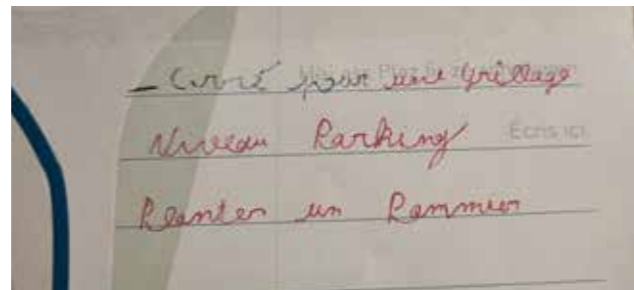 - Carré pour une grillage
Niveau Parking Écris ici
Planter un Pommier